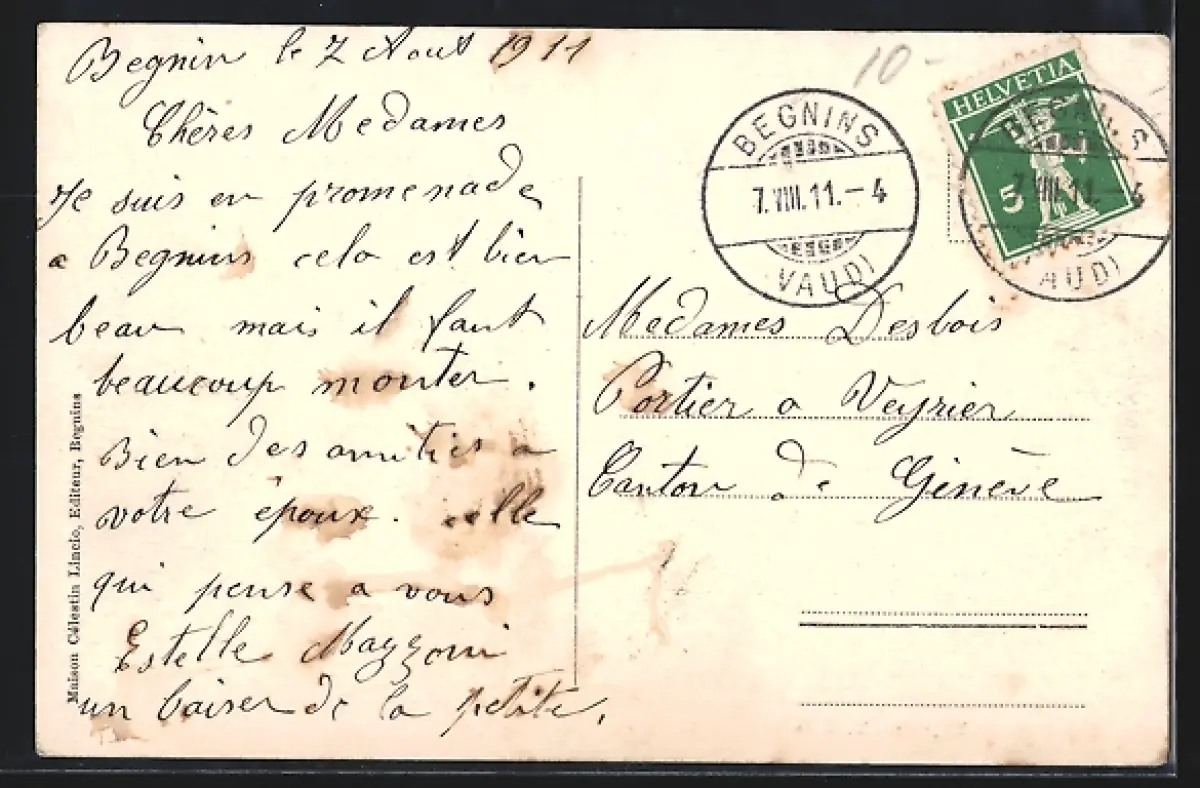 Begnin le 7 Aout 1911
Chères Medames
Je suis en promenade
a Begnins cela est bien
beau mais il faut
beaucoup monter.
Bien des amitiés a
votre époux. celle
qui pense a vous
Estelle Mazzoni
un baiser de la petite.
Maison Célestin Lincio, Editeur, Begnins
10-
BEGNINS
7.VIII.11.-4
(VAUD)
HELVETIA
5
BEGNINS
7.VIII.11.-4
(VAUD)
Medames Desbois
Portier a Veyrier
Canton de Genève